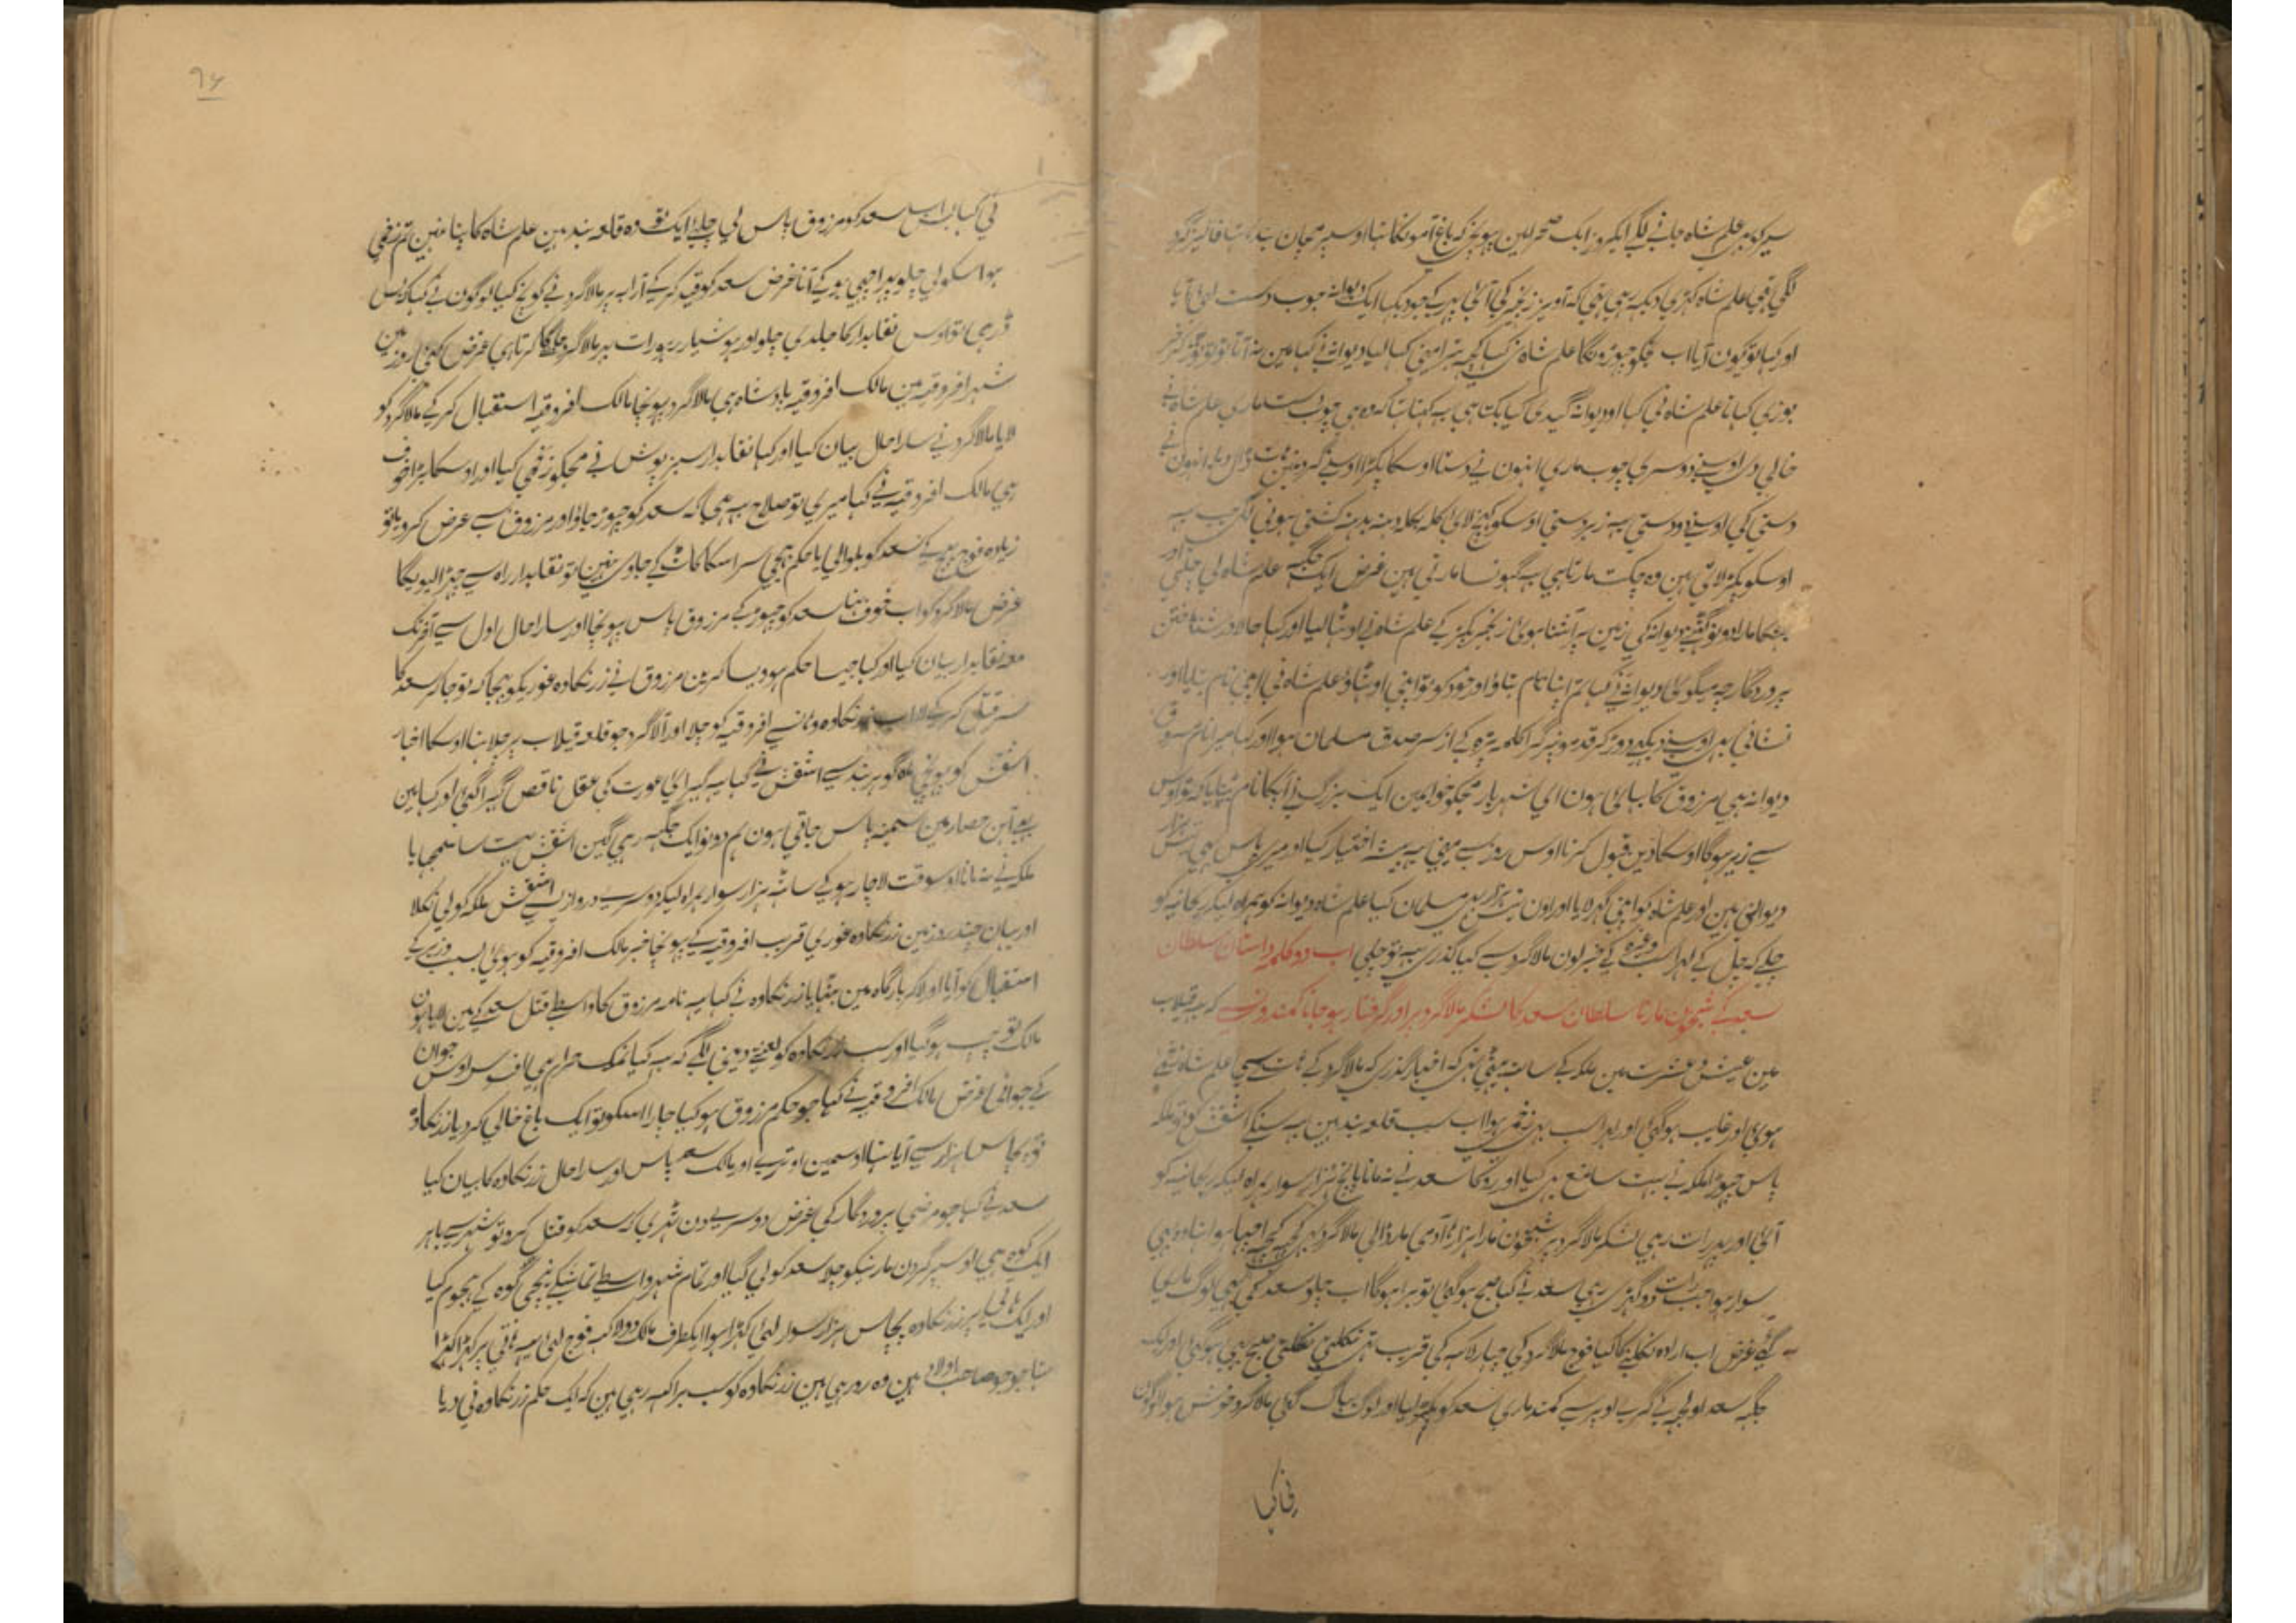 سیر کو ہی علم شاہ جانے لگے ایکروز ایک صحرا مین پہونچی کہ باغ آمونکا تہا اوسپر مچان بندہا تہا
لگی تہی علم شاہ کہڑی دیکہ رہی تہی کہ آواز زنجیر کی آئی پہر کے جو دیکہا ایک دیوانہ چوب دست لئی آیا
اور کہا تو کون آیا اب تجکو نچہوڑونگا علم شاہ نی کہا کچہ تیرا مینی کہا لیا دیوانہ نے کہا مین نہ آتا تو تو
توڑی کہاتا علم شاہ نی کہا او دیوانہ گیدی کیا بکتا ہی یہ کہنا تہا کہ وہی چوب دست ماری علم شاہ نے
خالی دی اوسنے دوسری چوب ماری انہون نے دستا اوسکا پکڑا اوسنے گردنمین ہات ڈال دیا انہون نے
دستی کی اوسنے دو دستی یہ زبردستی اوسکو کہینچ لائی کلہ بکلہ دہنہ بدہنہ کشتی ہونی لگی جب یہ
اوسکو پکڑ لاتی ہین وہ چکت مارتا ہی یہ گہونسا مارتی ہین غرض ایک جگہہ علم شاہ لی چلی اور
ہنکا مارا دونو گہٹنے دیوانہ کی زمین پر آشنا ہوئی زنجیر پکڑ کے علم شاہ نے اوٹہا لیا اور کہا حالا در شناختن
پروردگار چہ میگوئی دیوانہ نے کہا تم اپنا نام بتاؤ اور خود کو تو اپنی اوٹہاؤ علم شاہ نی اپنی نام بتایا اور
نشانی بہی اوسنے دیکہی دوڑ کر قدمونپر گرا کلمہ پڑہ کے از سر صدق مسلمان ہوا اور کہا میرا نام مسروق
دیوانہ ہی مرزوق کا بہائی ہون ای شہریار مجکو خوابمین ایک بزرگ نے آپکا نام بتایا کہ تو اوس
سے زیر ہوگا اوسکا دین قبول کرنا اوس روز سے مینی یہ پیشہ اختیار کیا اور میری پاس ہی تیس ہزار
دیوانی ہین اور علم شاہ کو اپنی گہر لایا اور اون تیس ہزار کو بہی مسلمان کیا علم شاہ دیوانہ کو ہمراہ لیکر ریحانیہ کو
چلے کہ چل کے لہراسب وغیرہ کے خبر لون مالاگرد سے کیا گذری یہہ تو چلی اب دو کلمہ داستان سلطان
سعد کے شبخون مارنا سلطان سعد کا لشکر مالاگرد پر اور گرفتار ہو جانا کمندونسے کہ یہہ قیلاب
مین عیش و عشرت مین ملکہ کے ساتہ بیٹہی تہی کہ اخبار گذری کہ مالاگرد کے ہات سے علم شاہ زخمی
ہوئی اور غایب ہوگئی اور لہراسب بہی زخمی ہوا اب سب قلعہ بند ہین یہ سنکے اشقش کو تو ملکہ
پاس چہوڑا ملکہ نے بہت سا منع بہی کیا اور روکا سعد نے نہ مانا پانچ ہزار سوار ہمراہ لیکر ریحانیہ کو
آئی اور پہر رات رہی لشکر مالاگرد پر شبخون مارا ہزارہا آدمی مار ڈالی مالاگرد بہی کچہہ اچہا ہوا تہا وہ بہی
سوار ہوا جب رات دو گہڑی رہی سعد نے کہا صبح ہوگئی تو برا ہوگا اب چلو سعد کی بہی لوگ ماری
گئے غرض اب ارادہ نکلنیکا کیا فوج مالاگرد کی چار لاکہہ کی قریب تہی نکلتی نکلتی صبح بہی ہوگئی اور ایک
جگہہ سعد اولجہہ کے گری اوپر سے کمند ماری سعد کو پکڑ لیا اور لوگ بہاگ گئی مالاگرد خوش ہوا لوگون
نی کہا
نی کہا اب اسے سعد کو مرزوق پاس لی چلئے ایک تو وہ قلعہ بند ہین علم شاہ کا پتا نہین تم زخمی
ہو اسکو لی چلو پہر اچہی ہو کے آنا غرض سعد کو قید کر کے آرابہ پر مالاگرد نے کوچ کیا لوگون نے کہا کہ اس
ڈر ہی تو اوس نقابدار کا جلدی چلو اور ہوشیار رہو رات بہر مالاگرد جاگا کرتا ہی غرض کئی روز مین
شہر افروقیہ مین مالک افروقیہ بادشاہ ہی مالاگرد پہونچا مالک افروقیہ استقبال کر کے مالاگرد کو
لایا مالاگرد نے سارا حال بیان کیا اور کہا نقابدار سبز پوش نے مجکو زخمی کیا اور اوسکا بڑا خوف
ہی مالک افروقیہ نے کہا میری تو صلاح یہہ ہی کہ سعد کو چہوڑ جاؤ اور مرزوق سے عرض کرو یا تو
زیادہ فوج بہیج کے سعد کو بلوا لی یا حکم بہیجی سر اسکا کاٹ کے جاوی نہین تو نقابدار راہ سے چہڑا لیویگا
غرض مالاگرد کو اب خوف تہا سعد کو چہوڑ کے مرزوق پاس پہونچا اور سارا حال اول سے آخر تک
معہ نقابدار بیان کیا اور کہا جیسا حکم ہو ویسا کرین مرزوق نے زرنکاوہ غوریکو بہیجا کہ تو جا کر سعد کا
سر قتل کر کے لا اب زرنکاوہ وہانسے افروقیہ کو چلا اور آلاگرد جو قلعہ قیلاب پر چلا تہا اوسکا اخبار
اشقش کو پہونچی ملکہ گوہر بند سے اشقش نے کہا یہہ گہبرائی عورت کی عقل ناقص گہبرا گئی اور کہا مین
روئین حصار مین سمینہ پاس جاتی ہون ہم دونو ایک جگہہ رہی گین اشقش بہت سا سمجہایا
ملکہ نے نہ مانا اوسوقت لاچار ہو کے ساٹہ ہزار سوار ہمراہ لیکر دوسرے دروازے سے اشقش ملکہ کو لی نکلا
اور یہان چند روز مین زرنکاوہ غوری قریب افروقیہ کے پہونچا خبر مالک افروقیہ کو ہوئی بسبب وزیر کے
استقبال کو آیا اور لا کر بارگاہ مین بٹہایا زرنکاوہ نے کہا یہہ نامہ مرزوق کا واسطے قتل سعد کے مین لایا ہون
مالک تو چپ ہو گیا اور سب زرنکاوہ کو لعنت دینی لگے کہ یہ کیا نمک حرام ہی افسوس اوس جوان
کے جوانی غرض مالک افروقیہ نے کہا جو حکم مرزوق ہو کیا چارا اسکو تو ایک باغ خالی کر دیا زرنکاوہ
تو پچاس ہزار سے آیا تہا اوسمین اوترے اور مالک سعد پاس اور سارا حال زرنکاوہ کا بیان کیا
سعد نے کہا جو مرضی پروردگار کی غرض دوسرے دن ٹہری کہ سعد کو قتل کرو تو شہر سے باہر
ایک کوہ ہی اوسپر گردن مارنیکو چلا سعد کو لی گیا اور تمام شہر واسطے تماشیکے نیچی کوہ کے ہجوم کیا
اور ایک پر زرنکاوہ پچاس ہزار سوار لئی کہڑا ہوا ایکطرف مالک دو لاکہہ فوج لئی ہاتی پر کہڑا
تہا جو جو صاحب اولاد ہین وہ رو رہی ہین زرنکاوہ کو سب برا کہہ رہی ہین کہ ایک حکم زرنکاوہ نی دیا